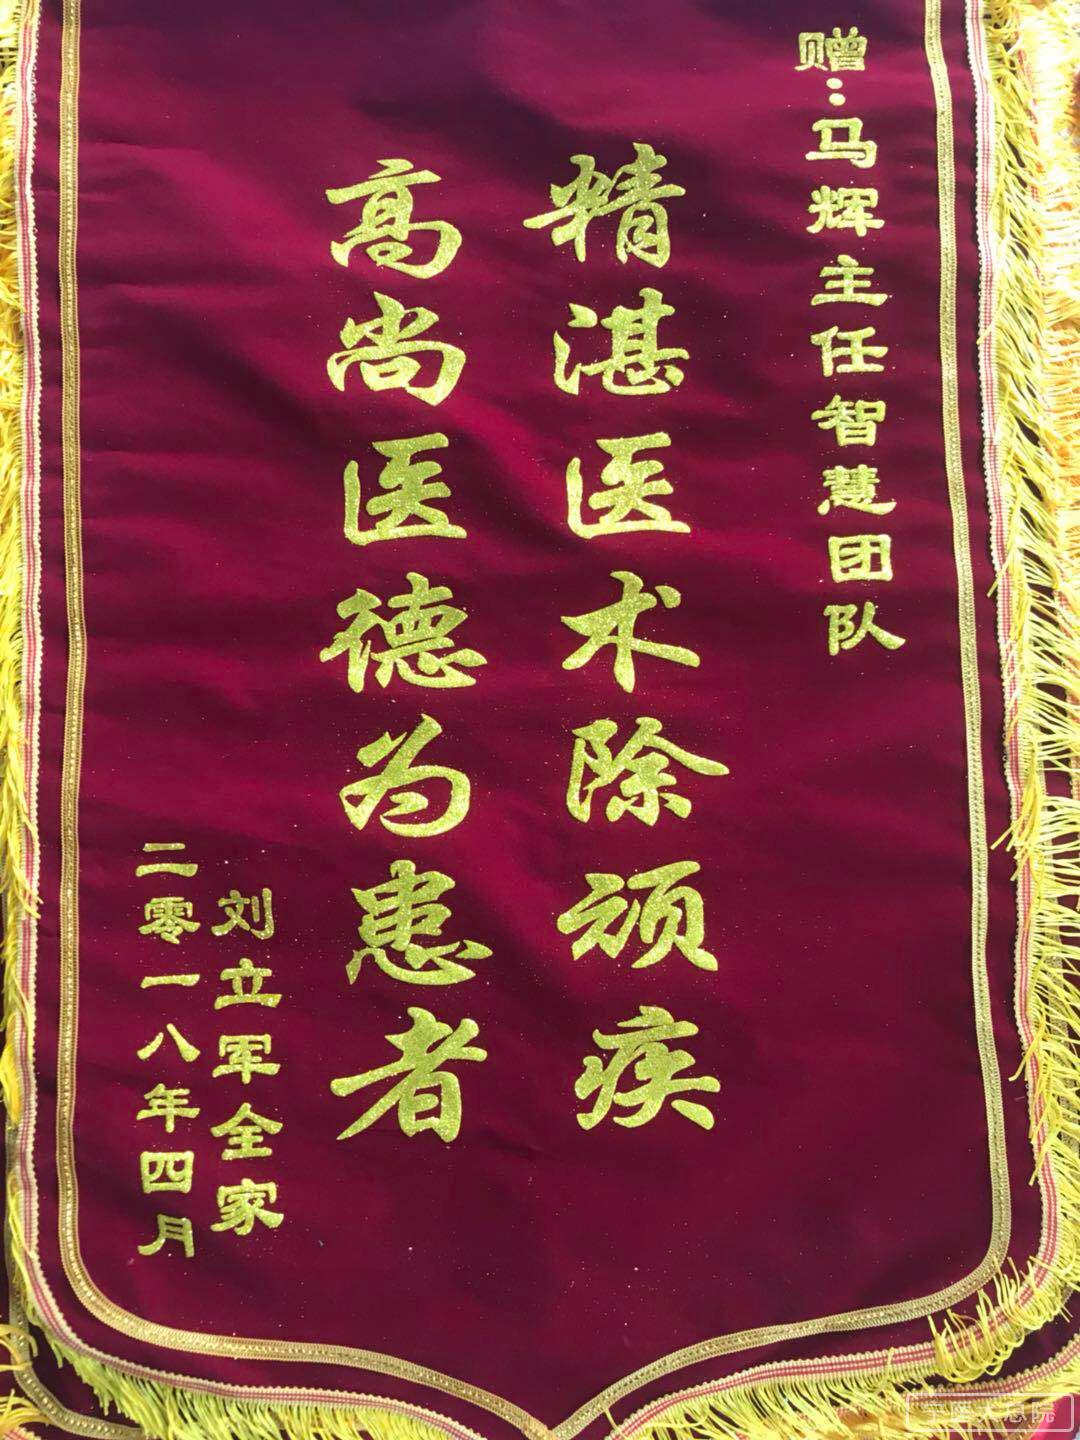 赠：马辉主任智慧团队
精湛医术除顽疾
高尚医德为患者
刘立军全家
二零一八年四月
宁医大总院